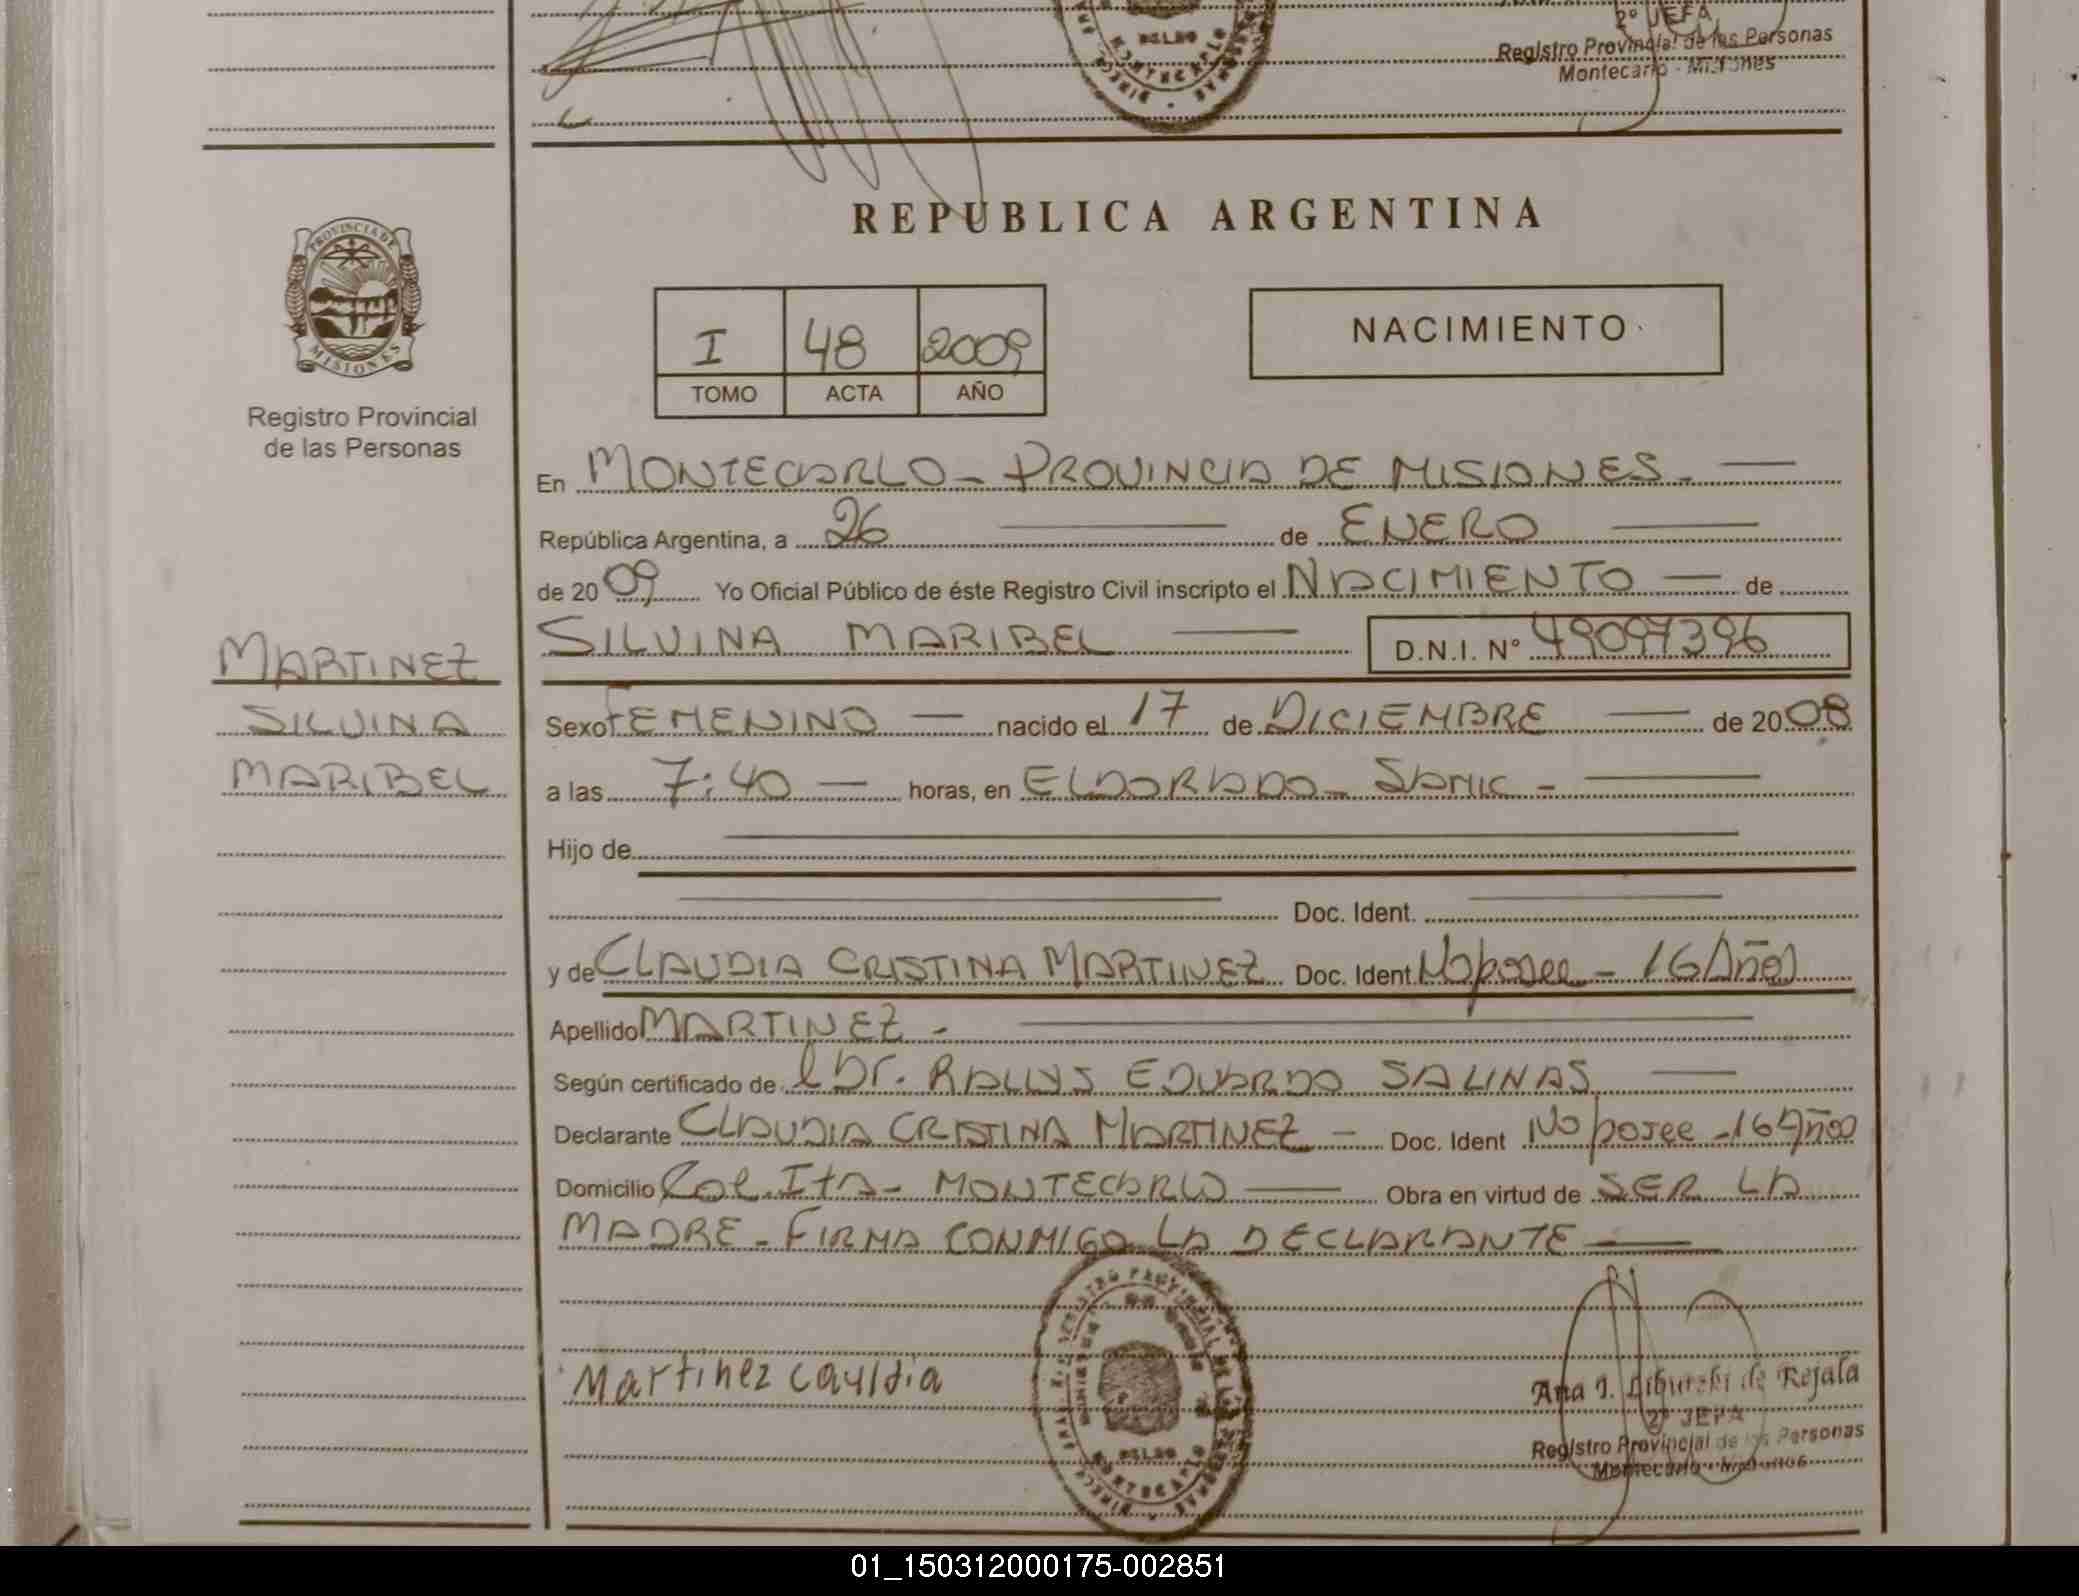 2º JEFA
Registro Provincial de las Personas
Montecarlo - Misiones
REPUBLICA ARGENTINA
PROVINCIA DE
MISIONES
I 48 2009
TOMO ACTA AÑO
NACIMIENTO
Registro Provincial
de las Personas
En MONTECARLO - PROVINCIA DE MISIONES.-
República Argentina, a 26 de ENERO
de 2009 Yo Oficial Público de éste Registro Civil inscripto el NACIMIENTO de
SILVINA MARIBEL D.N.I. Nº 49097396
MARTINEZ
SILVINA
MARIBEL
Sexo FEMENINO nacido el 17 de DICIEMBRE de 2008
a las 7:40 horas, en ELDORADO - SAMIC -
Hijo de
Doc. Ident.
y de CLAUDIA CRISTINA MARTINEZ Doc. Ident. No posee - 16 Años
Apellido MARTINEZ -
Según certificado de Dr. EDUARDO SALINAS
Declarante CLAUDIA CRISTINA MARTINEZ - Doc. Ident No posee - 16 Años
Domicilio Col. Ita - MONTECARLO Obra en virtud de SER LA
MADRE - FIRMA CONMIGO LA DECLARANTE
Martinez Cauldia
Ana I. de Rejala
2º JEFA
Registro Provincial de las Personas
Montecarlo - Misiones
01_150312000175-002851